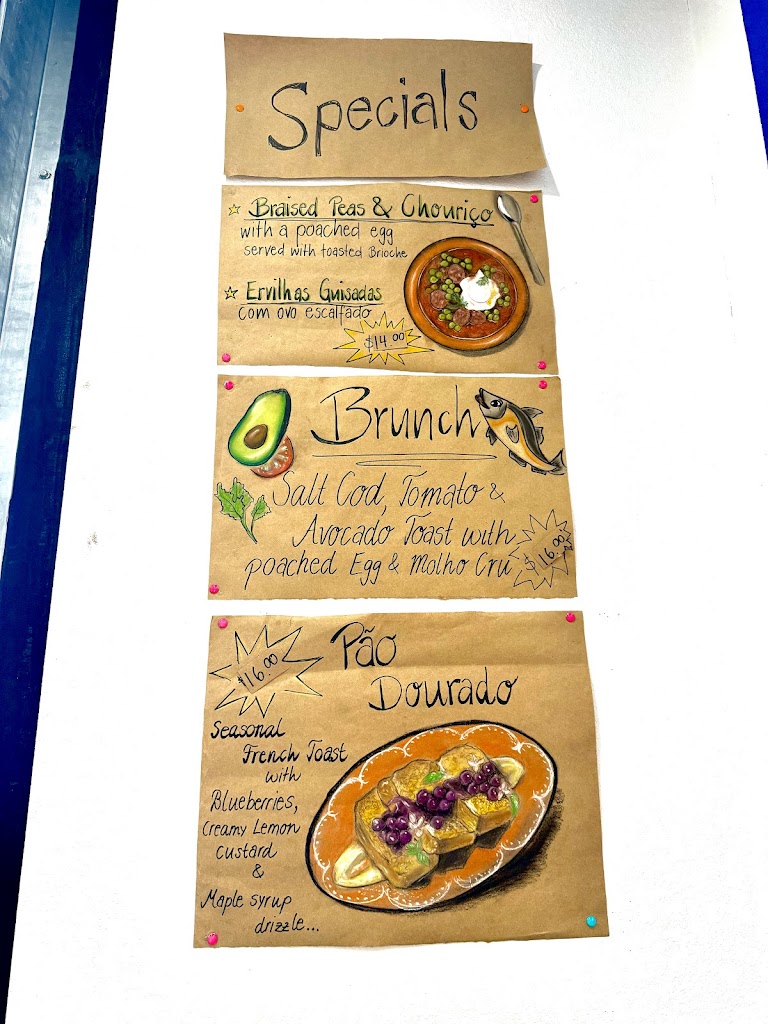 Specials
Braised Peas & Chouriço
with a poached egg
served with toasted Brioche
Ervilhas Guisadas
com ovo escalfado
$14.00
Brunch
Salt Cod, Tomato &
Avocado Toast with
poached Egg & Molho Cru
$16.00
$16.00
Pão
Dourado
Seasonal
French Toast
with
Blueberries,
Creamy Lemon
custard
&
Maple syrup
drizzle...